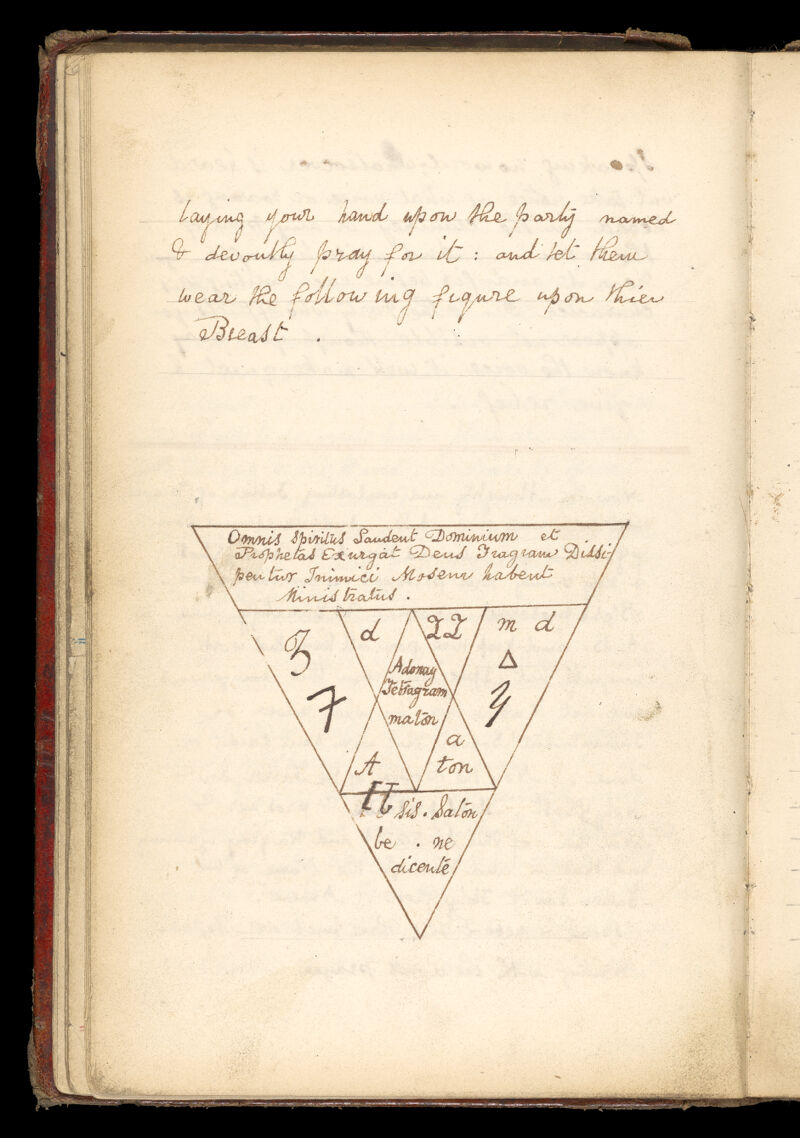 laying your hand upon the party named
& devoutly pray for it : and let them
wear the following figure upon thier
Breast .
Omnis Spiritus Laudent Dominium et
Prophetas Exurgat Deus Tragram Dissi-
pentur Inimici Mosem habent
Ministratus .
3 d m d
Δ
7 Adonay
Tetragram
matōn
a
A tōn
sis . Satōn
be . ne
dicentē